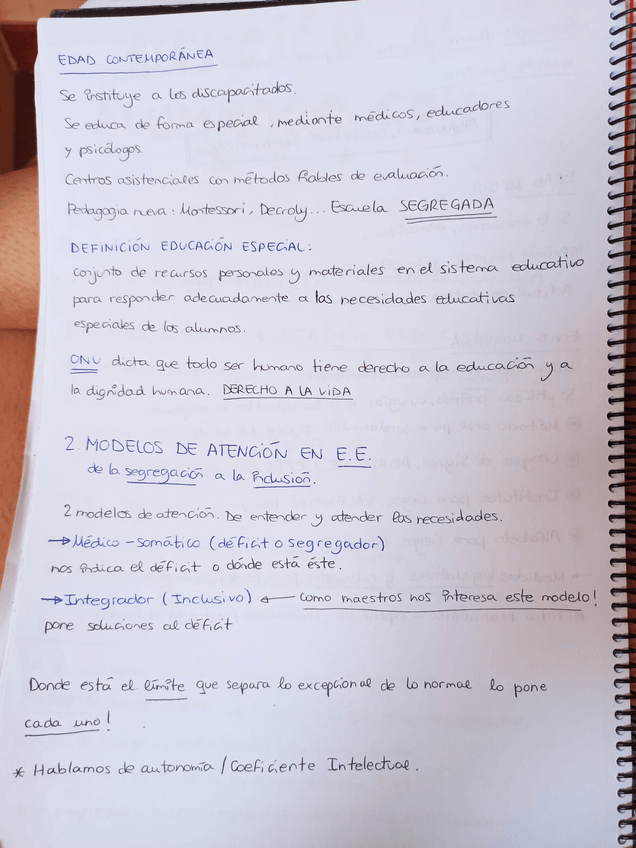 EDAD CONTEMPORÁNEA
Se instituye a los discapacitados.
Se educa de forma especial, mediante médicos, educadores
y psicólogos.
Centros asistenciales con métodos fiables de evaluación.
Pedagogía nueva: Montessori, Decroly... Escuela SEGREGADA
DEFINICIÓN EDUCACIÓN ESPECIAL:
conjunto de recursos personales y materiales en el sistema educativo
para responder adecuadamente a las necesidades educativas
especiales de los alumnos.
ONU dicta que todo ser humano tiene derecho a la educación y a
la dignidad humana. DERECHO A LA VIDA
2. MODELOS DE ATENCIÓN EN E.E.
de la segregación a la inclusión.
2 modelos de atención. De entender y atender las necesidades.
→ Médico-somático (déficit o segregador)
nos indica el déficit o dónde está éste.
→ Integrador (Inclusivo) ← como maestros nos interesa este modelo!
pone soluciones al déficit
Donde está el límite que separa lo excepcional de lo normal lo pone
cada uno!
* Hablamos de autonomía / Coeficiente Intelectual.